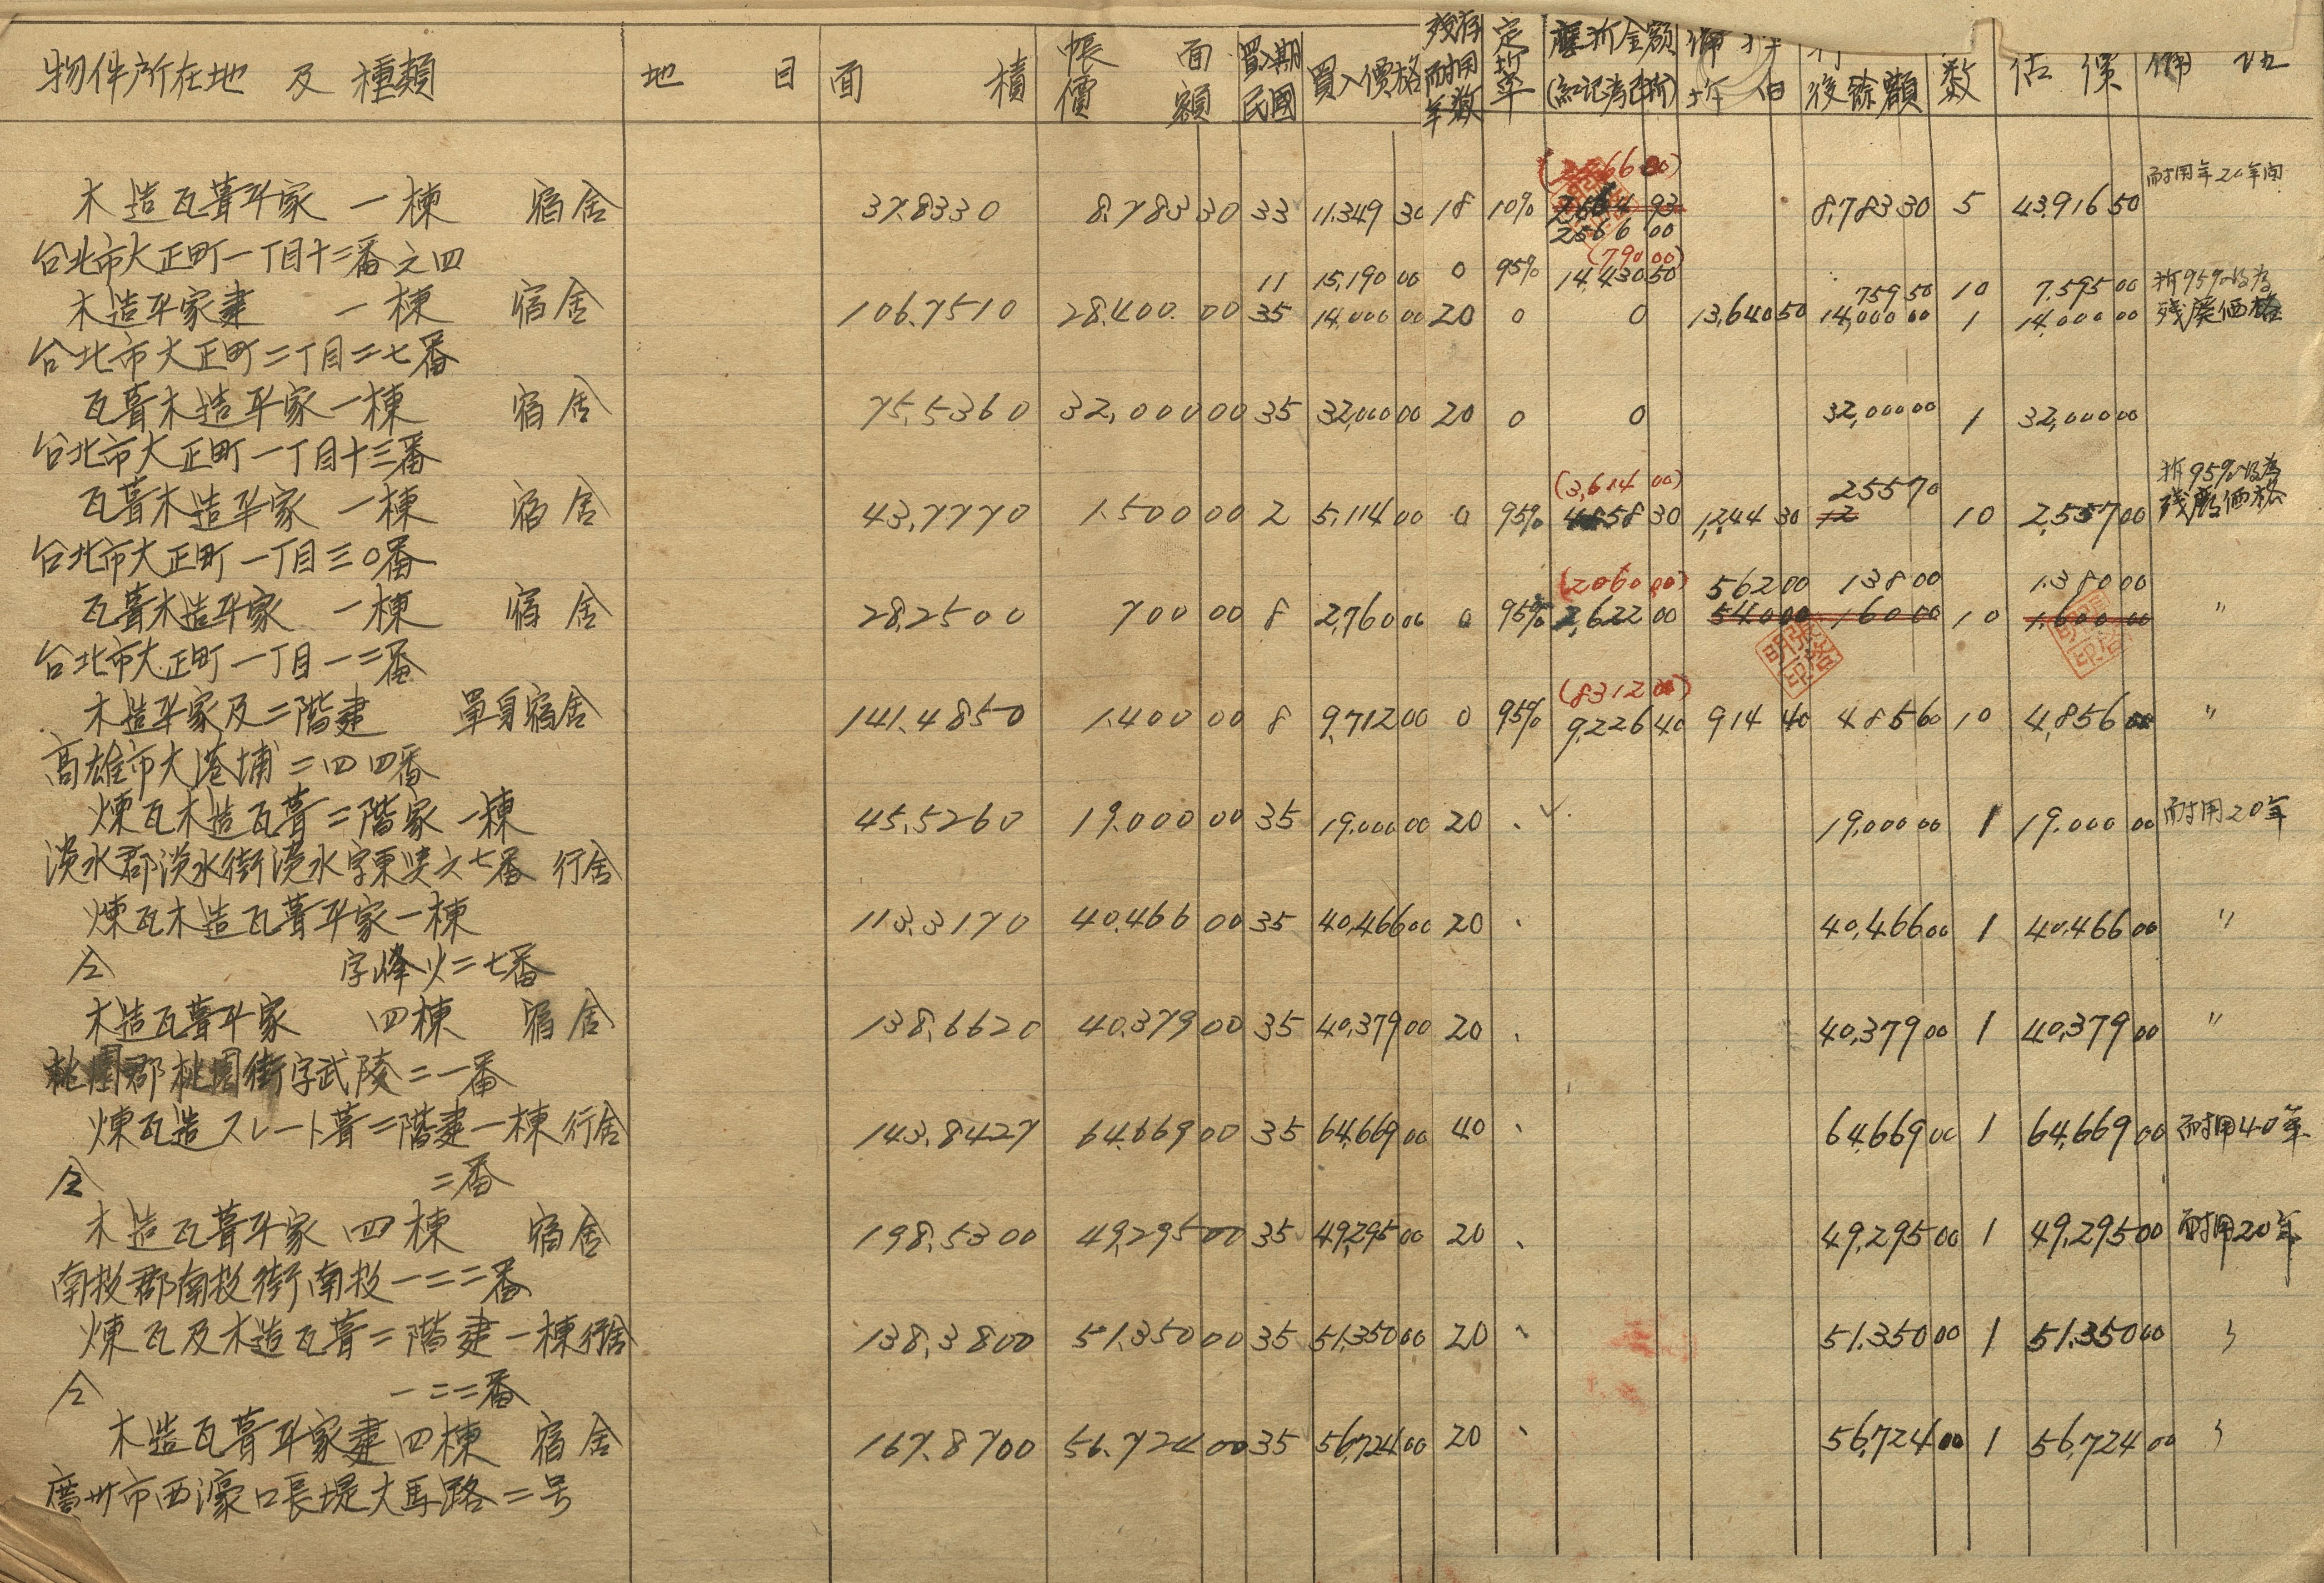 物件所在地 及 種類 地 目 面 積 帳面價額 買入期民國 買入價格 残存耐用年数 定折率 應折金額(紅記為已折) 後餘額 数 估 價
耐用年20年間
(66 00)
木造瓦葺平家 一棟 宿舍 37.8330 8.783 30 33 11.349 30 18 10% 2566 00 8,783 30 5 43,916 50
台北市大正町一丁目十二番之四
(790 00)
11 15,190 00 0 95% 14,430 50 759 50 10 7.595 00 折95%以為
木造平家建 一棟 宿舍 106.7510 28.400.00 35 14,000 00 20 0 0 13,640 50 14,000 00 1 14,000 00 残廃価格
台北市大正町二丁目二七番
瓦葺木造平家一棟 宿舍 75.5360 32,000 00 35 32,000 00 20 0 0 32,000 00 1 32,000 00
台北市大正町一丁目十三番
(3,614 00) 255 70 折95%以為
瓦葺木造平家 一棟 宿舍 43.7770 1.500 00 2 5,114 00 0 95% 4858 30 1,244 30 12 10 2,557 00 残廃価格
台北市大正町一丁目三〇番
(2060 00) 562 00 138 00 1.380 00
瓦葺木造平家 一棟 宿舍 28.2500 700 00 8 2,760 00 0 95% 2,622 00 540 00 160 00 10 1.600 00 〃
台北市大正町一丁目一二番
(8312 00)
木造平家及二階建 單身宿舍 141.4850 1.400 00 8 9,712 00 0 95% 9,226 40 914 40 485 60 10 4,856 00 〃
高雄市大港埔二四四番
煉瓦木造瓦葺二階家一棟 45.5260 19.000 00 35 19.000 00 20 、 19,000 00 1 19.000 00 耐用20年
淡水郡淡水街淡水字東興六七番 行舍
煉瓦木造瓦葺平家一棟 113.3170 40.466 00 35 40,466 00 20 、 40,466 00 1 40.466 00 〃
仝 字烽火二七番
木造瓦葺平家 四棟 宿舍 138.6620 40.379 00 35 40,379 00 20 、 40,379 00 1 40,379 00 〃
桃園郡桃園街字武陵二一番
煉瓦造スレート葺二階建一棟行舍 143.8427 64.669 00 35 64,669 00 40 、 64,669 00 1 64,669 00 耐用40年
仝 二番
木造瓦葺平家 四棟 宿舍 198.5300 49,295 00 35 49,295 00 20 、 49,295 00 1 49,295 00 耐用20年
南投郡南投街南投一二二番
煉瓦及木造瓦葺二階建一棟行舍 138.3800 51.350 00 35 51.350 00 20 、 51.350 00 1 51.350 00 〃
仝 一二二番
木造瓦葺平家建四棟 宿舍 167.8700 56.724 00 35 56,724 00 20 、 56,724 00 1 56,724 00 〃
廣州市西濠口長堤大馬路二号